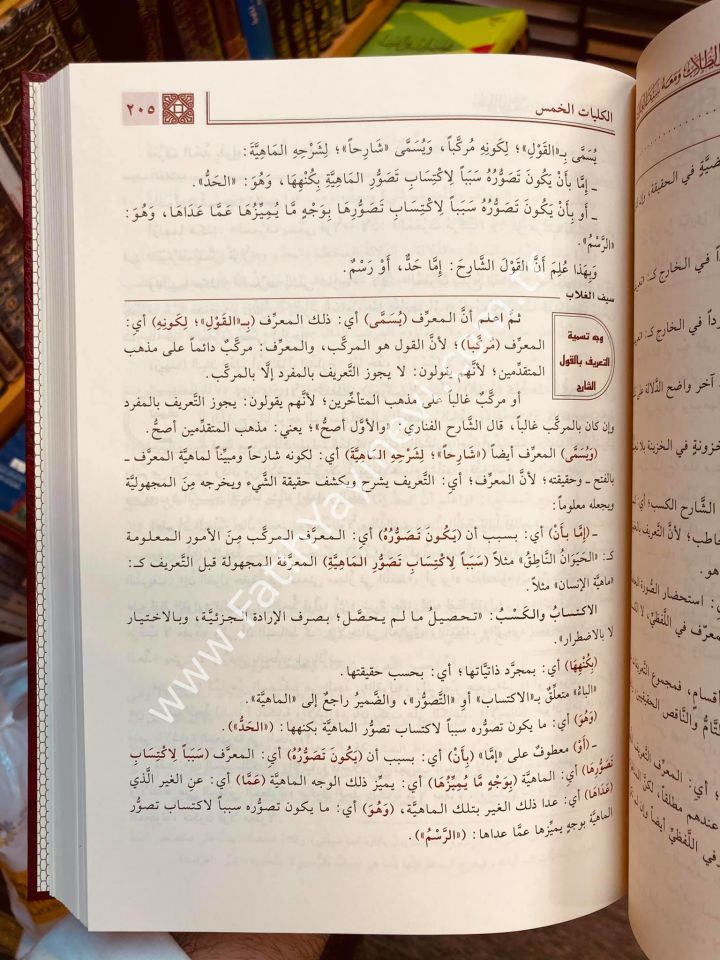 الكليات الخمس
٢٠٥
يُسَمَّى بِـ«القَوْلِ»؛ لِكَونِهِ مُرَكَّباً، وَيُسَمَّى «شَارِحاً»؛ لِشَرْحِهِ المَاهِيَّةَ:
ـ إِمَّا بِأَنْ يَكُونَ تَصَوُّرُهُ سَبَباً لِاكْتِسَابِ تَصَوُّرِ المَاهِيَّةِ بِكُنْهِهَا، وَهُوَ: «الحَدُّ».
ـ أَو بِأَنْ يَكُونَ تَصَوُّرُهُ سَبَبَاً لِاكْتِسَابِ تَصَوُّرِهَا بِوَجْهٍ مَّا يُمَيِّزُهَا عَمَّا عَدَاهَا، وَهُوَ:
«الرَّسْمُ».
وَبِهَذَا عُلِمَ أَنَّ القَوْلَ الشَّارِحَ: إِمَّا حَدٌّ، أَوْ رَسْمٌ.
سيف الغلاب
وجه تسمية
التعريف بالقول
الشارح
ثمَّ اعلم أنَّ المعرِّف (يُسَمَّى) أي: ذلك المعرِّف (بِـ«القَوْلِ»؛ لِكَونِهِ) أي:
المعرِّف (مُرَكَّباً)؛ لأنَّ القول هو المركَّب، والمعرِّف: مركَّبٌ دائماً على مذهب
المتقدِّمين؛ لأنَّهم يقولون: لا يجوز التَّعريف بالمفرد إلَّا بالمركَّب.
أو مركَّبٌ غالباً على مذهب المتأخِّرين؛ لأنَّهم يقولون: يجوز التَّعريف بالمفرد
وإن كان بالمركَّب غالباً، قال الشَّارح الفناري: «والأوَّل أصحُّ»؛ يعني: مذهب المتقدِّمين أصحُّ.
(وَيُسَمَّى) المعرِّف أيضاً («شَارِحاً»؛ لِشَرْحِهِ المَاهِيَّةَ) أي: لكونه شارحاً ومبيِّناً لماهية المعرَّف ـ
بالفتح ـ وحقيقته؛ لأنَّ المعرِّف؛ أي: التَّعريف يشرح ويكشف حقيقة الشَّيء ويخرجه مِنَ المجهوليَّة
ويجعله معلوماً:
ـ (إِمَّا بِأَنْ) أي: بسبب أن (يَكُونَ تَصَوُّرُهُ) أي: المعرِّف المركَّب مِنَ الأمور المعلومة
كـ: «الحَيَوَانُ النَّاطِقُ» مثلاً (سَبَباً لِاكْتِسَابِ تَصَوُّرِ المَاهِيَّةِ) المعرَّفة المجهولة قبل التَّعريف كـ:
«ماهيَّة الإنسان» مثلاً.
الاكتسابُ والكَسْبُ: «تحصيلُ ما لم يحصل؛ بصرف الإرادة الجزئيَّة، وبالاختيار
لا بالاضطرار».
(بِكُنْهِهَا) أي: بمجرَّد ذاتيَّاتها؛ أي: بحسب حقيقتها.
الباءُ متعلِّقٌ بـ«الاكتساب» أو «التَّصوُّر»، والضَّميرُ راجعٌ إلى «الماهيَّة».
(وَهُوَ) أي: ما يكون تصوره سبباً لاكتساب تصوُّر الماهية بكنهها: («الحَدُّ»).
ـ (أَوْ) معطوفٌ على «إما» (بِأَنْ) أي: بسبب أن (يَكُونَ تَصَوُّرُهُ) أي: المعرِّف (سَبَباً لِاكْتِسَابِ
تَصَوُّرِهَا) أي: الماهيَّة (بِوَجْهٍ مَّا يُمَيِّزُهَا) أي: يميز ذلك الوجه الماهيَّة (عَمَّا) أي: عن الغير الَّذي
(عَدَاهَا) أي: عدا ذلك الغير بتلك الماهيَّة، (وَهُوَ) أي: ما يكون تصوُّره سبباً لاكتساب تصوُّر
الماهيَّة بوجهٍ يميِّزها عمَّا عداها: («الرَّسْمُ»).